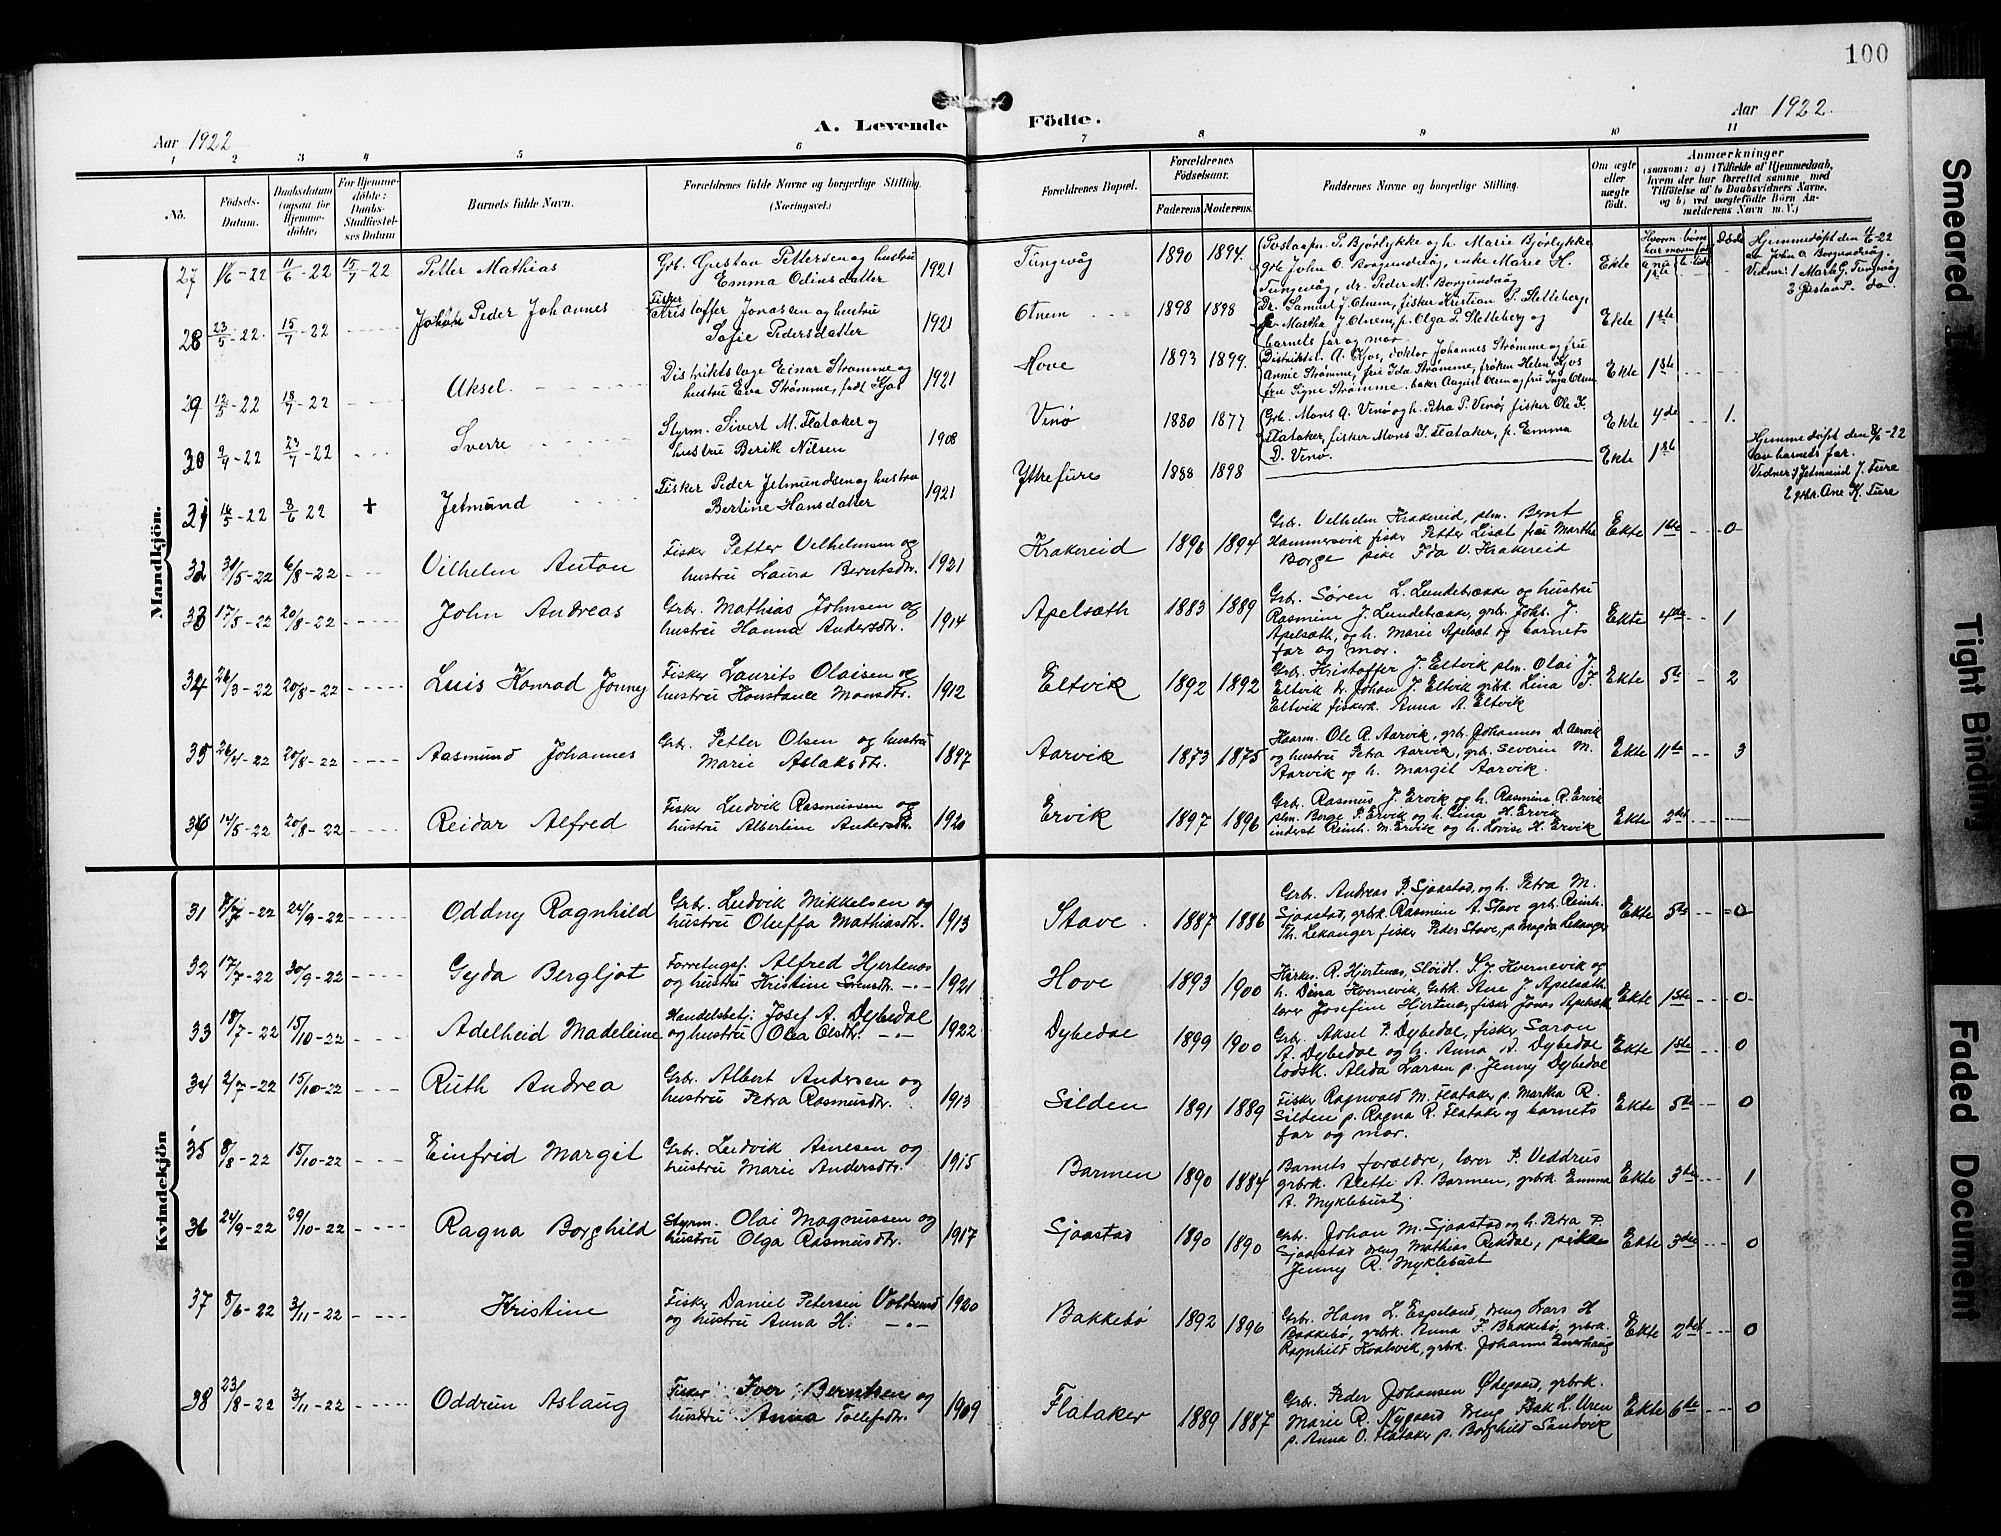 100
Aar 1922
A. Levende Födte.
Aar 1922
1 2 3 4 5 6 7 8 9 10 11
No.
Födsels-
Datum.
Daabsdatum
(ogsaa for
Hjemme-
döbte)
For Hjemme-
döbte:
Daabs-
Stadfæstel-
ses Datum
Barnets fulde Navn.
Forældrenes fulde Navne og borgerlige Stilling.
(Næringsvei.)
Forældrenes Bopæl.
Forældrenes
Födselsaar.
Faderens. Moderens.
Faddernes Navne og borgerlige Stilling.
Om ægte
eller
uægte
födt.
Anmærkninger
(saasom: a) i Tilfælde af Hjemmedaab,
hvem der har forrettet samme, med
Tilföielse af to Daabsvidners Navne,
og b) ved uægtefödte Börn An-
melderens Navn m. V.)
Mandkjön.
27 1/6-22 11/6-22 15/7-22 Petter Mathias
Grb. Gustav Pettersen og hustru
Emma Odinsdatter
1921 Tungevåg 1890 1894
Postaapn. P. Bjørlykke og h. Marie Bjørlykke
grb John O. Borgundvåg, enke Marie H.
Tungevåg, dr. Peder M. Borgundvåg
Ekte 1ste
Hjemmedøpt den 4/6-22
av John O. Borgundvåg
Vidner: 1 Mark G. Tungevåg
2 Gustav P. do
28 23/5-22 15/7-22 Peder Johannes
Fisker
Kristoffer Jonassen og hustru
Sofie Pedersdatter
1921 Otnem 1898 1898
Dr. Samuel J. Otnem, fisker Kristian P. Sletteberg
Martha J. Otnem, p. Olga P. Sletteberg og
barnets far og mor
Ekte 1ste
29 12/5-22 18/7-22 Aksel
Distriktslæge Einar Strømme og
hustru Eva Strømme, født Kjos
1921 Hove 1893 1899
Distriktsl. A. Kjos, doktor Johannes Strømme og fru
Annie Strømme, fru Ida Strømme, frøken Helen Kjos
fru Signe Strømme, baker August Olsen og fru Inga Olsen
Ekte 1ste
30 9/4-22 23/7-22 Sverre
Styrm. Sivert M. Flataker og
hustru Berit Nilsen
1908 Venø 1880 1877
Grb. Mons A. Venø og h. Petra P. Venø, fisker Ole K.
Flataker, fisker Mons I. Flataker, p. Emma
D. Venø.
Ekte 4de 1.
31 16/5-22 8/6 22 + Jetmund
Fisker Peder Jetmundsen og hustru
Bertine Hansdatter
1921 Ytrefure 1888 1898
Ekte 1ste
Hjemmedøpt den 8/6-22
av barnets far.
Vidner: 1 Jetmund J. Fure
2 grbk. Ane K. Fure
32 30/5-22 6/8-22 Vilhelm Anton
Fisker Petter Vilhelmsen og
hustru Laura Berntsdtr.
1921 Krakereid 1896 1894
Grb. Vilhelm Krakereid, plm. Bernt
Hammersvik fisker Petter Liset fru Martha
Borge pike Ida V. Krakereid
Ekte 1ste 0
33 17/5-22 20/8-22 John Andreas
Grb. Mathias Johnsen og
hustru Hanna Andersdtr.
1914 Apelsæth 1883 1889
Grb. Søren L. Lundebrække og hustru
Rasmine J. Lundebrække, grb. Johs. J.
Apelsæth, og h. Marie Apelsæt og barnets
far og mor.
Ekte 4de 1
34 26/3-22 20/8-22 Luis Konrad Jonny
Fisker Laurits Olaisen og
hustru Konstance Monsdtr.
1912 Eltvik 1892 1892
Grb. Kristoffer J. Eltvik plm. Olai J.
Eltvik dr. Johan J. Eltvik grbk. Lina J.
Eltvik fiskerk. Anna A. Eltvik
Ekte 5te 2
35 26/4-22 20/8-22 Aasmund Johannes
Grb. Petter Olsen og hustru
Marie Aslaksdtr.
1897 Aarvik 1873 1875
Haarm. Ole R. Aarvik, grb. Johannes D. Aarvik
og hustru Petra Aarvik, grb. Severin M.
Aarvik og h. Margit Aarvik.
Ekte 11te 3
36 14/5-22 20/8-22 Reidar Alfred
Fisker Ludvik Rasmussen og
hustru Albertine Andersdtr.
1920 Ervik 1897 1896
Grb. Rasmus J. Ervik og h. Rasmine R. Ervik
plm. Børge P. Ervik og h. Lina H. Ervik
inderst Reinh. M. Ervik og h. Lovise H. Ervik
Ekte 2det
Kvindekjön
31 8/7-22 24/9-22 Oddny Ragnhild
Grb. Ludvik Mikkelsen og
hustru Oluffa Mathiasdtr.
1913 Stave 1887 1886
Grb. Andreas P. Sjaastad, og h. Petra M.
Sjaastad, grbrk. Rasmine A. Stave grb. Reinh.
Th. Lekanger fisker Peder Stave, p. Magda Lekanger
Ekte 5te 0
32 17/7-22 30/9-22 Gyda Bergljot
Forretngsf. Alfred Hjertenes
og hustru Kristine Sørensdtr. -"-
1921 Hove 1893 1900
Kirkes. R. Hjertenes, Sløidl. S. J. Kvernevik og
h. Dina Kvernevik, Grbk. Ane J. Apelsæth
lærer Josefine Hjertenes, fisker Jonas Apelsæth
Ekte 1ste 0
33 18/7-22 15/10-22 Adelheid Madeleine
Handelsbetj: Josef A. Dybedal
og hustru Olea Olsdtr. -"-
1922 Dybedal 1899 1900
Grb. Aksel P. Dybedal, fisker Saron
A. Dybedal og h. Anna A. Dybedal
lodsk. Alida Larsen p. Jenny Dybedal
Ekte 1ste 0
34 2/7-22 15/10-22 Ruth Andrea
Grb. Albert Andersen og
hustru Petra Rasmusdtr.
1913 Silden 1891 1889
Fisker Ragnvald M. Flataker p. Martha R.
Silden p. Ragna R. Flataker og barnets
far og mor.
Ekte 5te 0
35 8/8-22 15/10-22 Einfrid Margit
Grb. Ludvik Arnesen og
hustru Marie Andersdtr.
1915 Barmen 1890 1884
Barnets forældre, lærer P. Veddrus
grbrk. Alette A. Barmen, grbrk. Emma
A. Myklebust
Ekte 3de 1
36 24/9-22 29/10-22 Ragna Borghild
Styrm. Olai Magnussen og
hustru Olga Rasmusdtr.
1917 Sjaastad 1890 1890
Grb. Johan M. Sjaastad og h. Petra P.
Sjaastad dreng Mathias Rekdal, pike
Jenny R. Myklebust
Ekte 3die 0
37 8/6-22 3/11-22 Kristine
Fisker Daniel Petersen Voldsund
og hustru Anna H. -"-
1920 Bakkebø 1892 1896
Grb. Hans L. Espeland, dreng Lars H
Bakkebø, grbrk. Anna P. Bakkebø, grbrk.
Ragnhild Kvalsvik, grbrk. Johanne Enerhaug
Ekte 2det 0
38 23/8-22 3/11-22 Oddrun Aslaug
Fisker Iver Berntsen og
hustru Anna Tollefsdtr.
1909 Flataker 1889 1887
Grb. Peder Johansen Ødegaard, grbrk.
Marie R. Nygaard dreng Isak L. Uren
p. Anna O. Flataker p. Borghild Sandvik
Ekte 6te 0
Smeared
Tight Binding
Faded Document